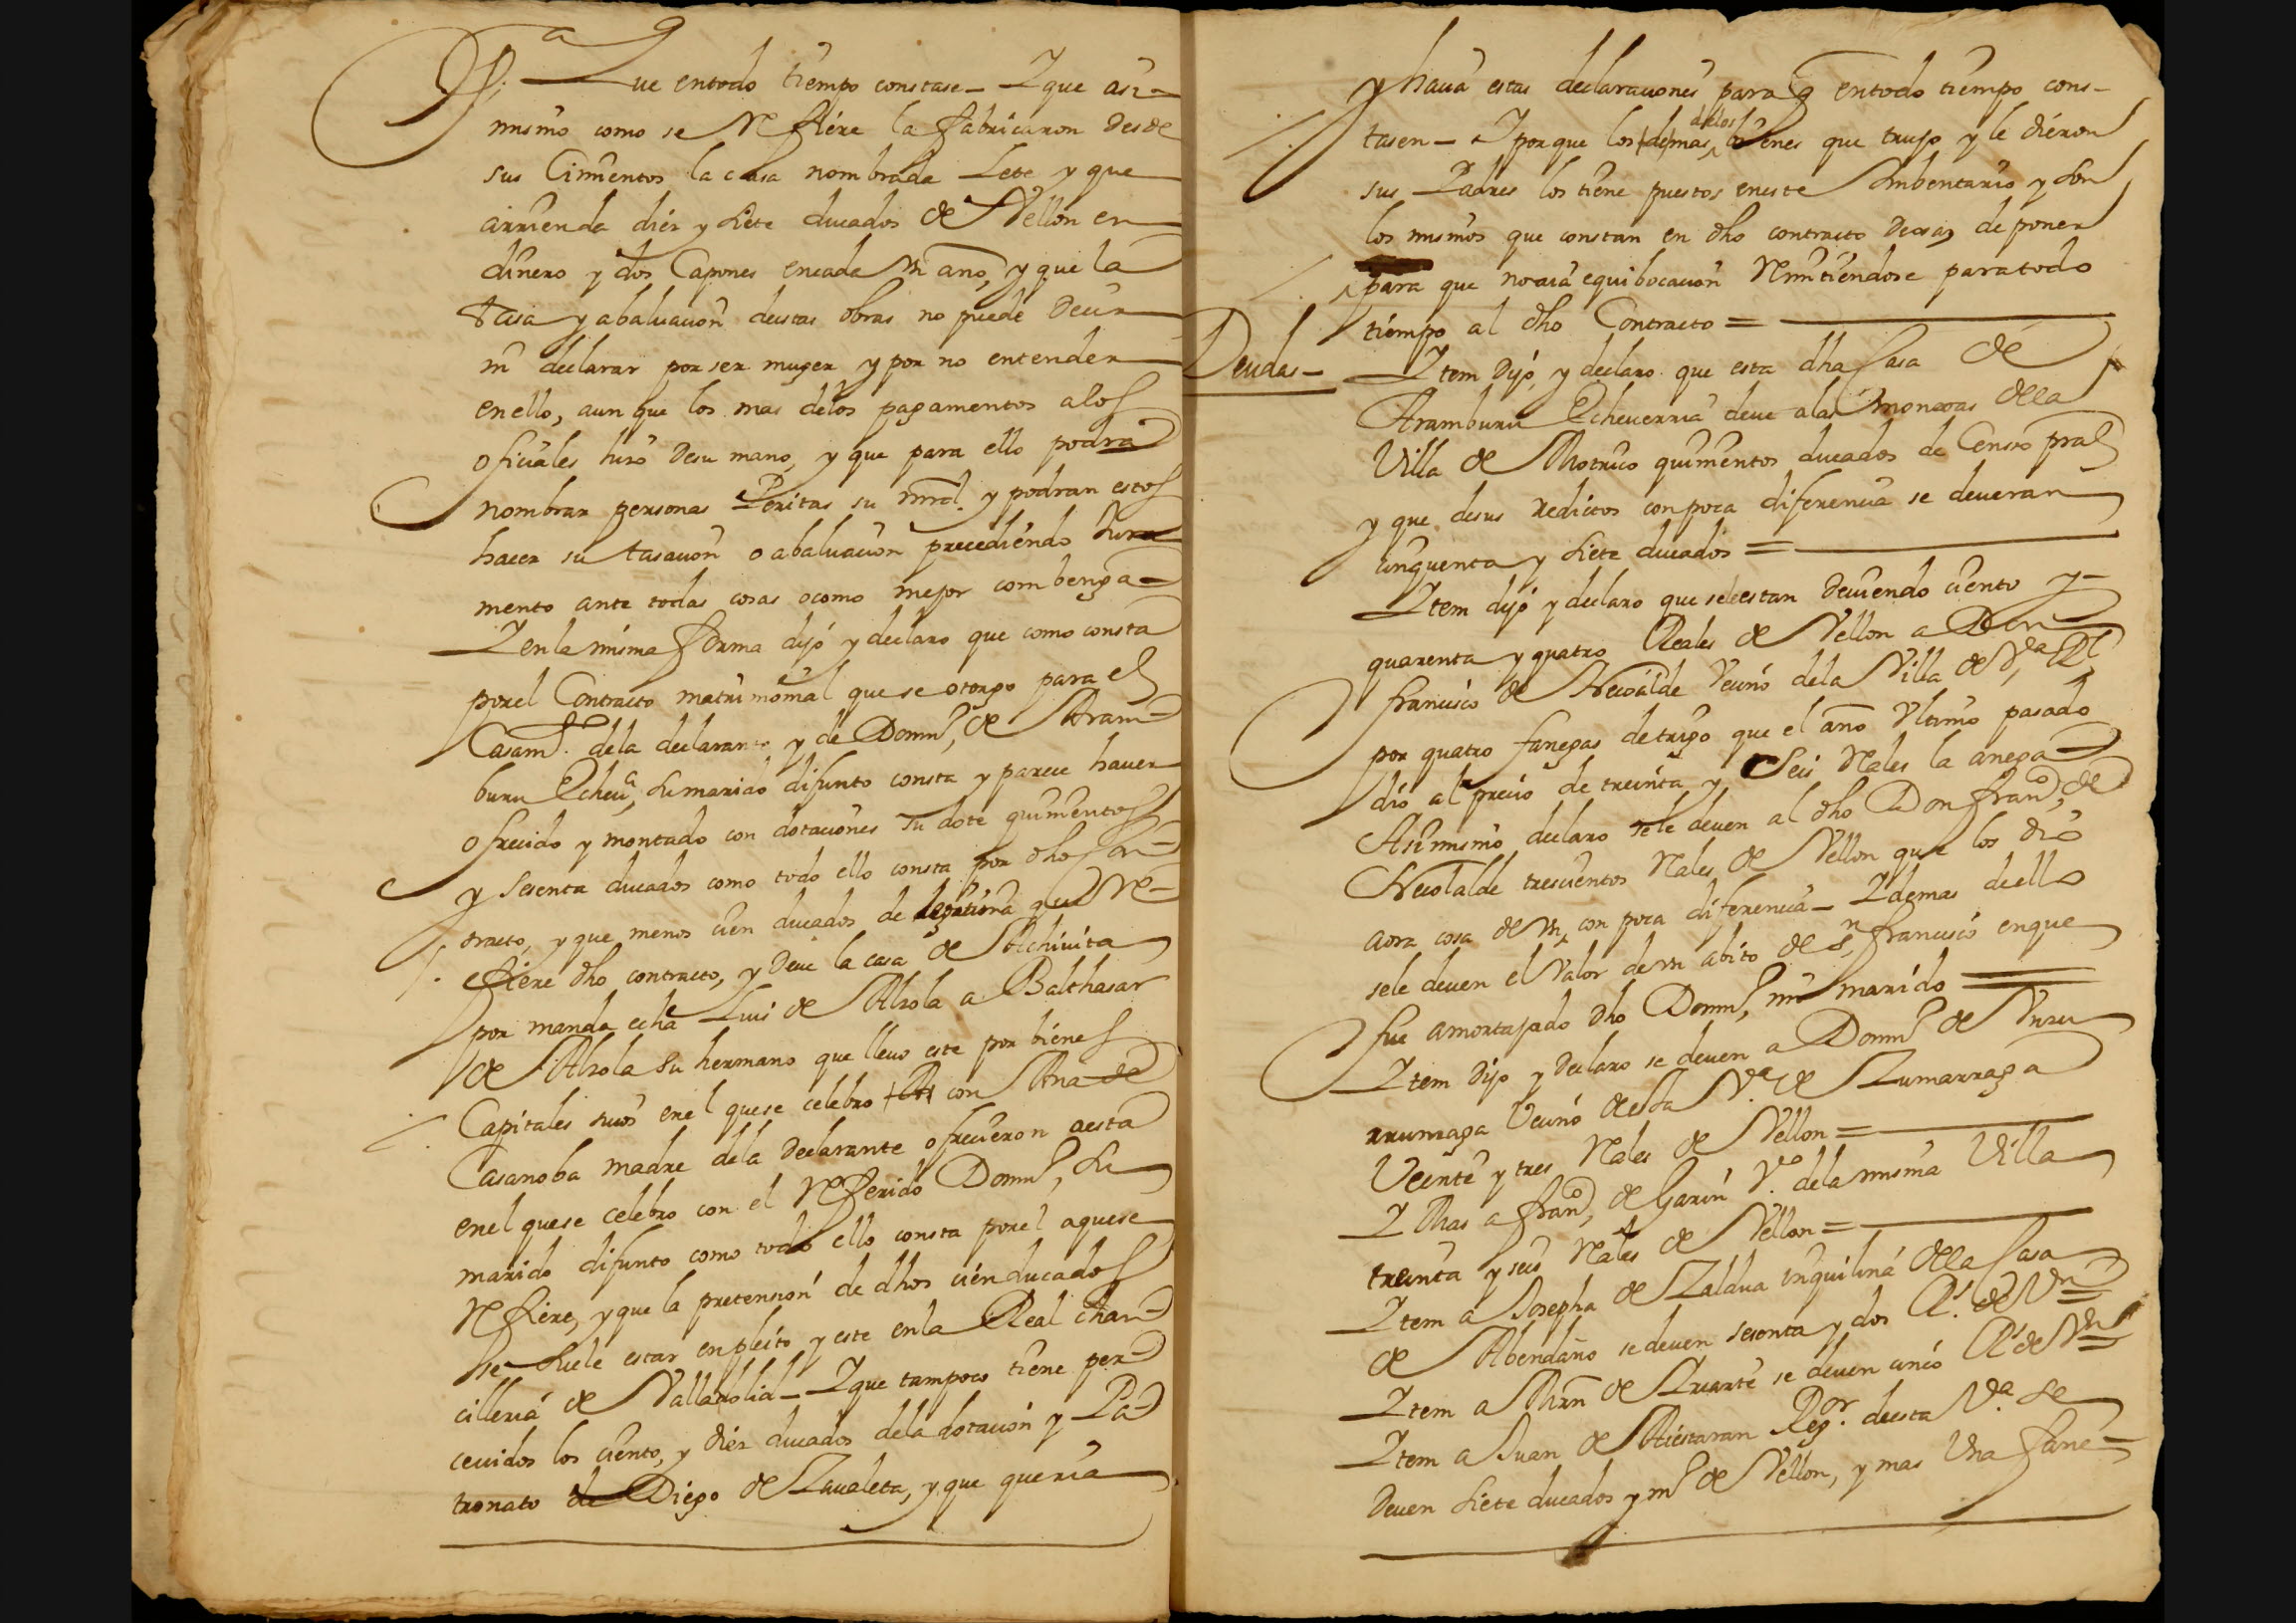 P.ª Que entodo tiempo constase – Y que asi-
mismo como se Refiere la fabricaron desde
sus Cimientos la casa nombrada Lete y que
arrienda diez y siete ducados de Vellon en
dinero y dos Capones encada Un año, y que la
tasa y abaluacion destas obras no puede decir
ni declarar por ser muger y por no entender
enello, aun que los mas delos pagamentos alos
oficiales hizo desu mano, y que para ello podra
nombrar personas Peritas su mrd. y podran estos
hacer su tasacion o abaluacion precediendo Jura
mento ante todas cosas o como mejor combenga –
Y enla misma forma dijo y declaro que como consta
porel Contracto matrimonial que se otorgo para el
Casamto. dela declarante y de Domin, de Aram-
buru Echeva, su marido difunto consta y parece haver
ofrecido y montado con dotaciones su dote quinientos
y sesenta ducados como todo ello consta por dho Con-
tracto, y que menos cien ducados de legitima que Re-
fiere dho contracto, y deve la casa de Achivita
por manda echa Luis de Alzola a Balthasar
de Alzola su hermano que llevo este por bienes
Capitales suios enel quese celebro con Ana de
Casanoba madre dela declarante ofrecieron aesta
enel quese celebro con el Referido Domin, su
marido difunto como todo ello consta porel aquese
Refiere, y que la pretension de dhos cien ducados
se suele estar enpleito y este enla Real chan-
cilleria de Valladolid – Y que tampoco tiene per-
cevidos los ciento, y diez ducados dela dotacion y Pa-
tronato de Diego de Zavaleta, y que queria
y hacia estas declaraciones para q entodo tiempo cons-
tasen – Y porque los demas delos bienes que trujo y le dieron
sus Padres los tiene puestos eneste Imbentario y son
los mismos que constan en dho contracto dexa de poner
para que no aia equibocacion Remitiendose paratodo
tiempo al dho Contracto =
Deudas –
Ytem dijo, y declaro que esta dha Casa de
Aramburu Echeverria deve alas monxas dela
Villa de Motrico quinientos ducados de Censo pral
y que desus redictos conpoca diferencia se deveran
cinquenta y siete ducados =
Ytem dijo y declaro que seleestan deviendo ciento y –
quarenta y quatro Reales de Vellon a Don
francisco de Necolalde Vecino dela Villa de Va. Rl
por quatro fanegas de trigo que el año Ultimo pasado
dio al precio de treinta y Seis Rales la anega
Asimismo declaro sele deven al dho Don franco, de
Necolalde trescientos Rales de Vellon que los dio
aora cosa de Un, con poca diferencia – Y demas deello
sele deven el Valor de un abito de Sn, francisco enque
fue amortajado dho Domin, mi marido =
Ytem dijo y declaro se deven a Domin de Urru
rrunzaga Vecino desta Va. de Zumarraga
Veinte y tres Rales de Vellon =
Y Mas a franco, de Garin Vo. dela misma Villa
treinta y seis Rales de Vellon =
Ytem a Josepha de Zaldua inquilina dela Casa
de Abendaño se deven sesenta y dos Rs. de Vn
Ytem a Mrn de Iriarte se deven cinco Rs de Vn
Ytem a Juan de Aiestaran Regor. deesta Va. se
deven siete ducados y mo de Vellon, y mas Una fane-